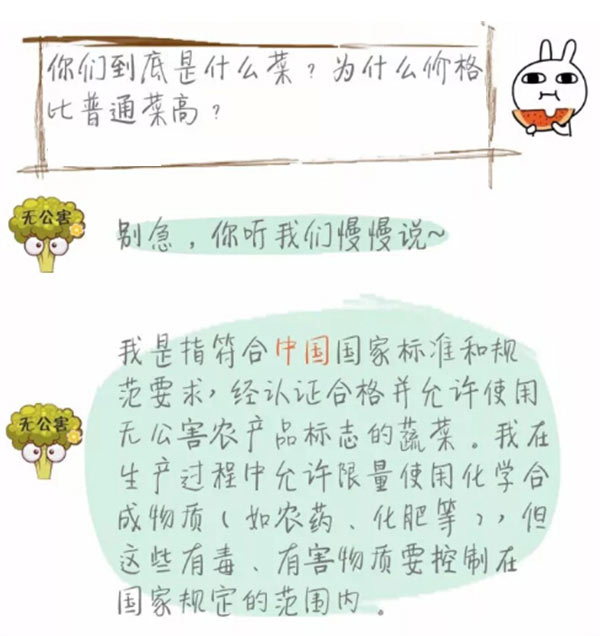 你们到底是什么菜？为什么价格
比普通菜高？
无公害
别急，你听我们慢慢说~
我是指符合中国国家标准和规
范要求，经认证合格并允许使用
无公害农产品标志的蔬菜。我在
生产过程中允许限量使用化学合
成物质（如农药、化肥等），但
这些有毒、有害物质要控制在
国家规定的范围内。
无公害